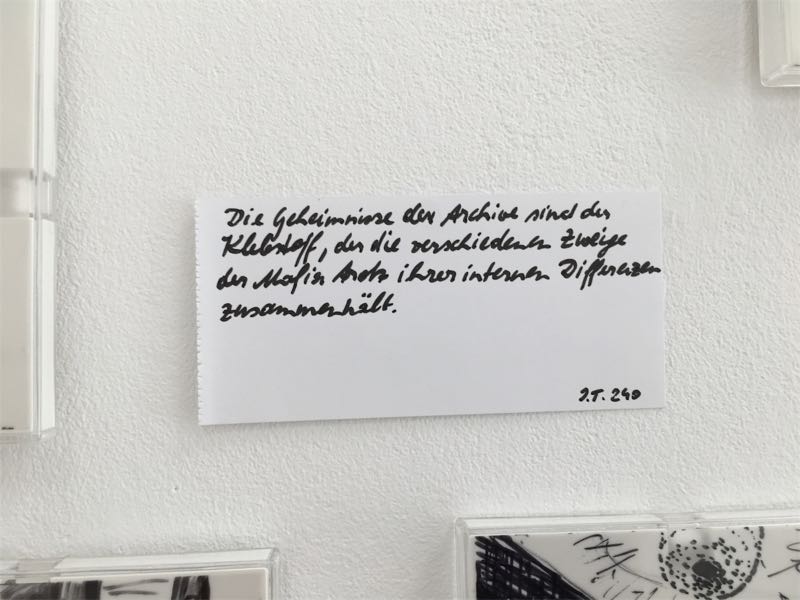 Die Geheimnisse der Archive sind der
Klebstoff, der die verschiedenen Zweige
der Mafia trotz ihrer internen Differenzen
zusammenhält.
J.T. 240